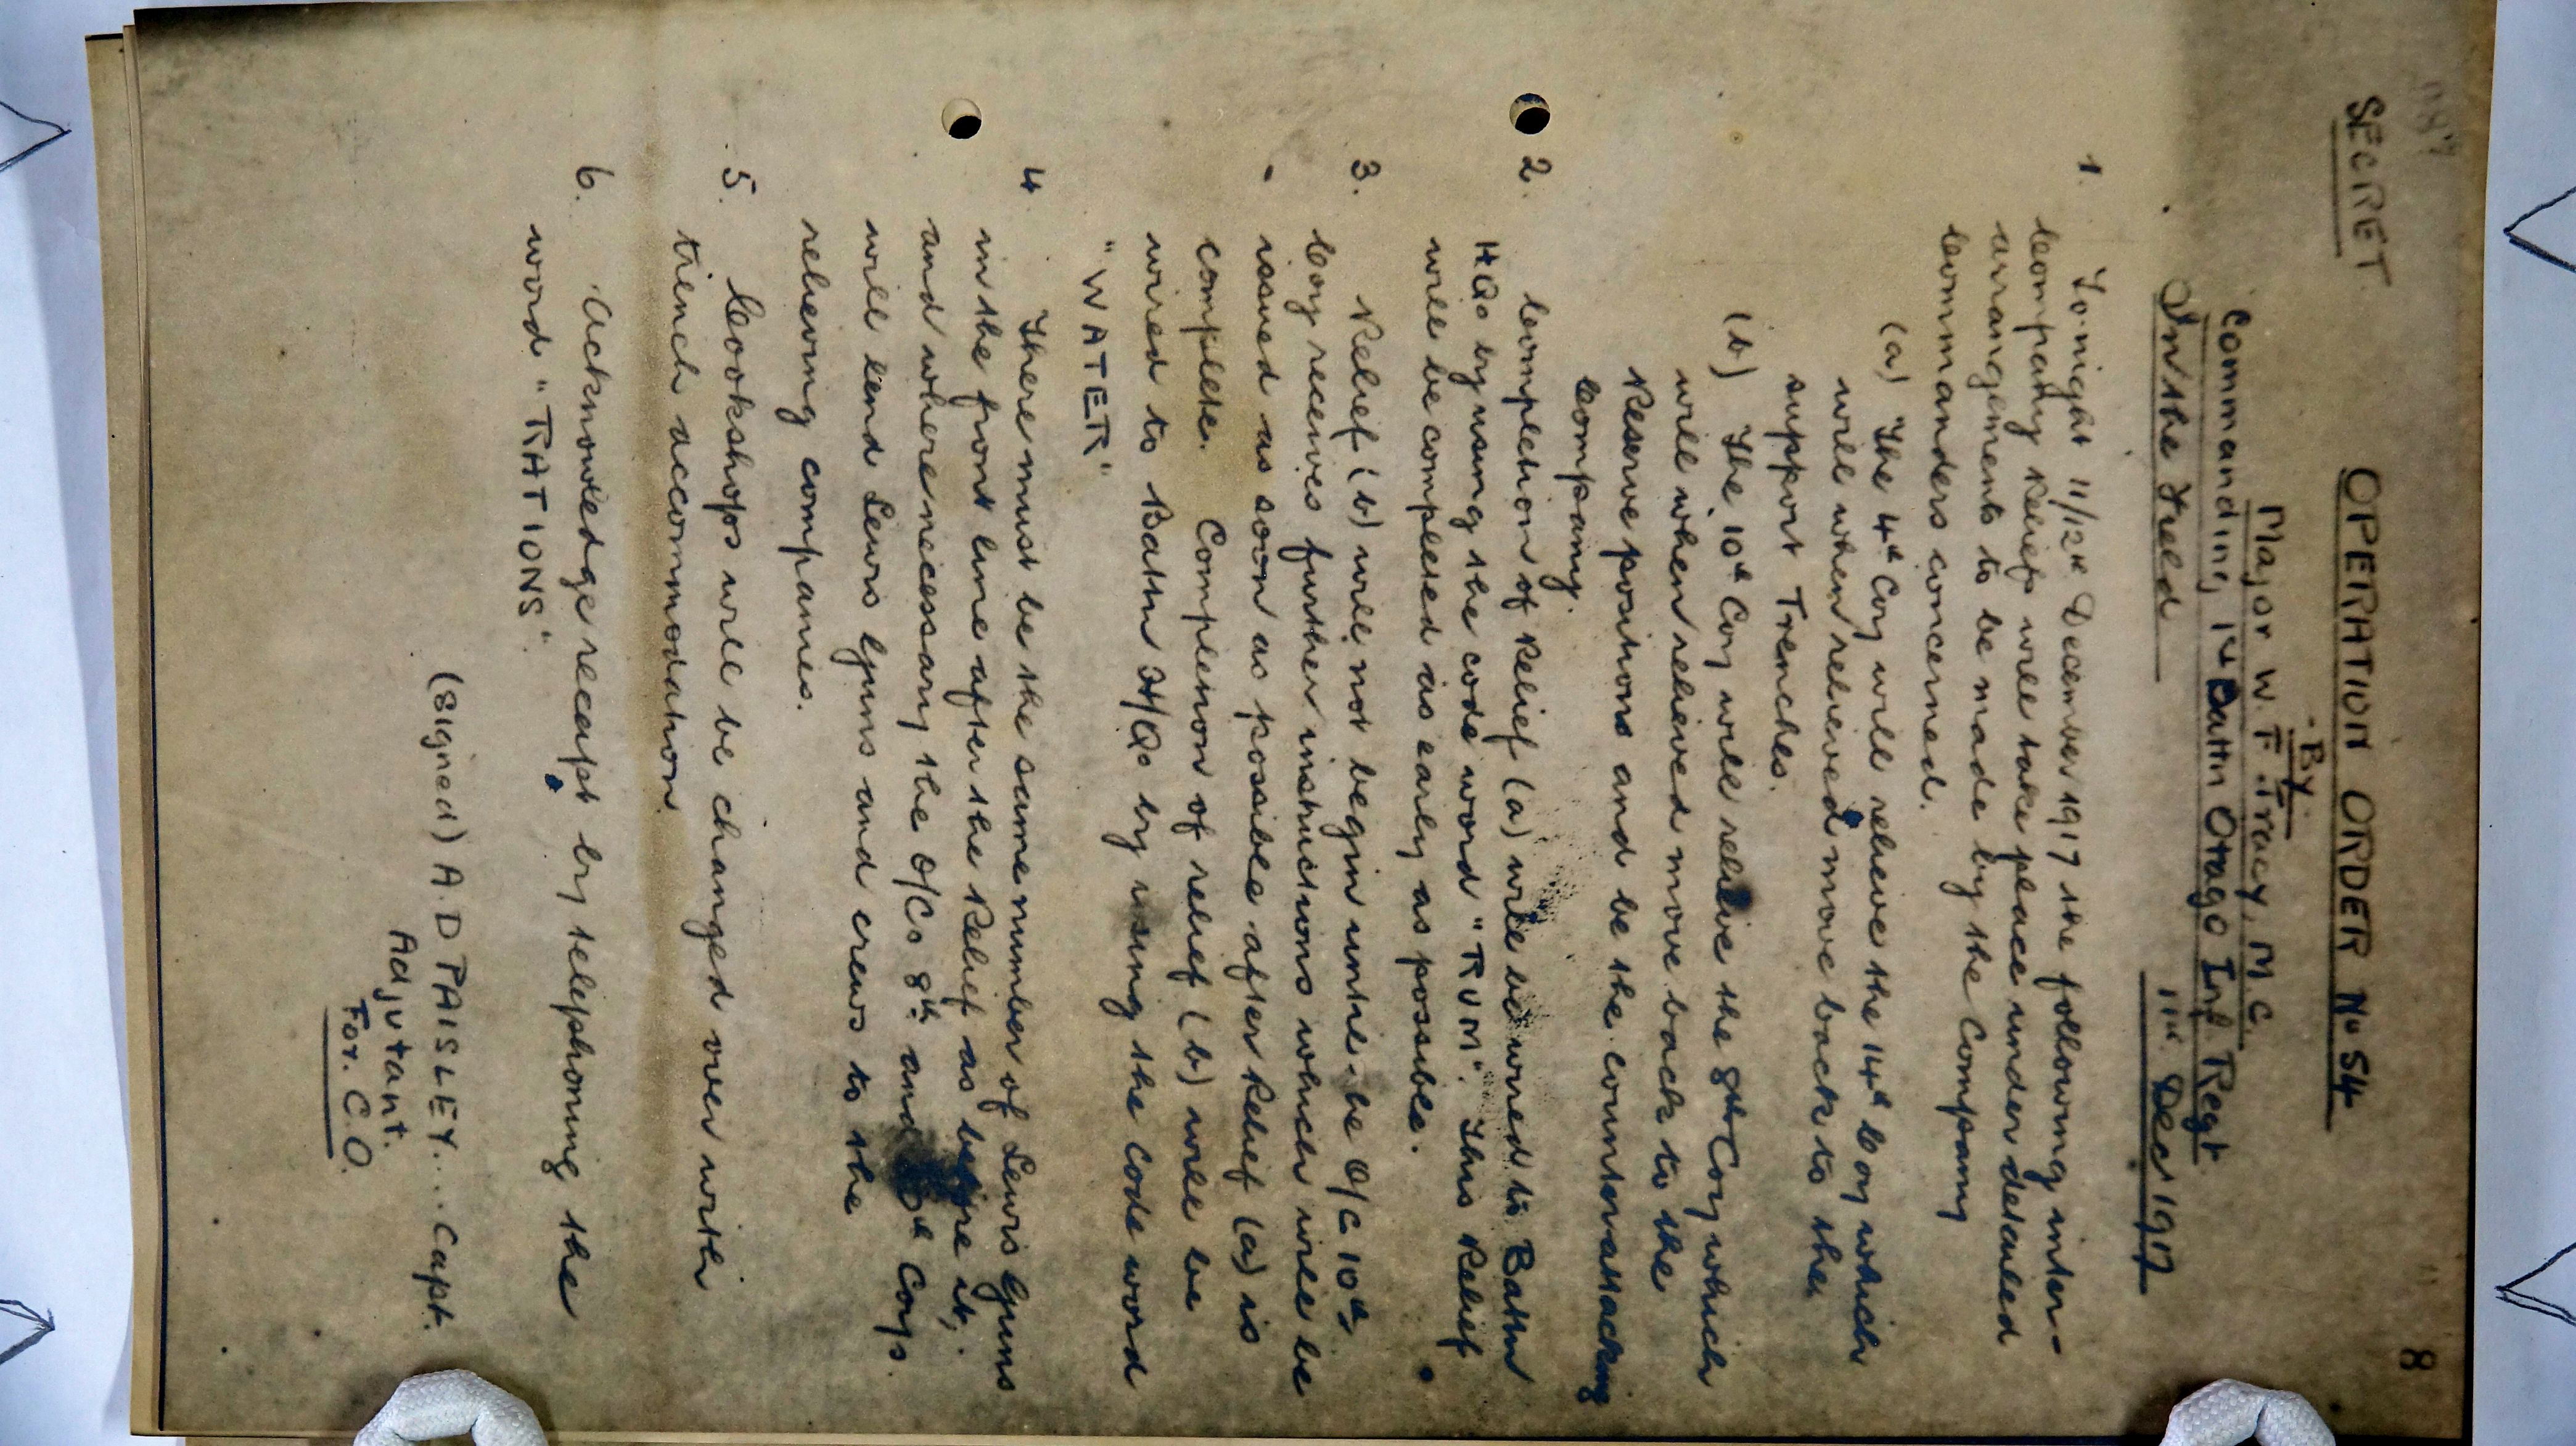 SECRET
8
OPERATION ORDER No 54
By
Major W. F. Tracy, M.C.
Commanding 1st Battn Otago Inf. Regt
In the Field
11th Dec 1917
1. To-night 11/12th December 1917 the following inter-
company Reliefs will take place under detailed
arrangements to be made by the Company
Commanders concerned.
(a) The 4th Coy will relieve the 14th Coy which
will when relieved move back to the
support Trenches.
(b) The 10th Coy will relieve the 8th Coy which
will when relieved move back to the
Reserve positions and be the counterattacking
Company.
2. Completion of Relief (a) will be wired to Battn
HQs by using the code word "RUM". This Relief
will be completed as early as possible.
3. Relief (b) will not begin until the O/C 10th
Coy receives further instructions which will be
issued as soon as possible after Relief (a) is
complete. Completion of relief (b) will be
wired to Battn H/Qs by using the code word
"WATER"
4 There must be the same number of Lewis Guns
in the front line after the Relief as before it,
and where necessary the O/Cs 8th and Coys
will lend Lewis Guns and crews to the
relieving companies.
5. Cookshops will be changed over with
trench accommodation.
6. Acknowledge receipt by telephoning the
word "RATIONS".
(Signed) A. D PAISLEY... Capt.
Adjutant.
For. C.O.